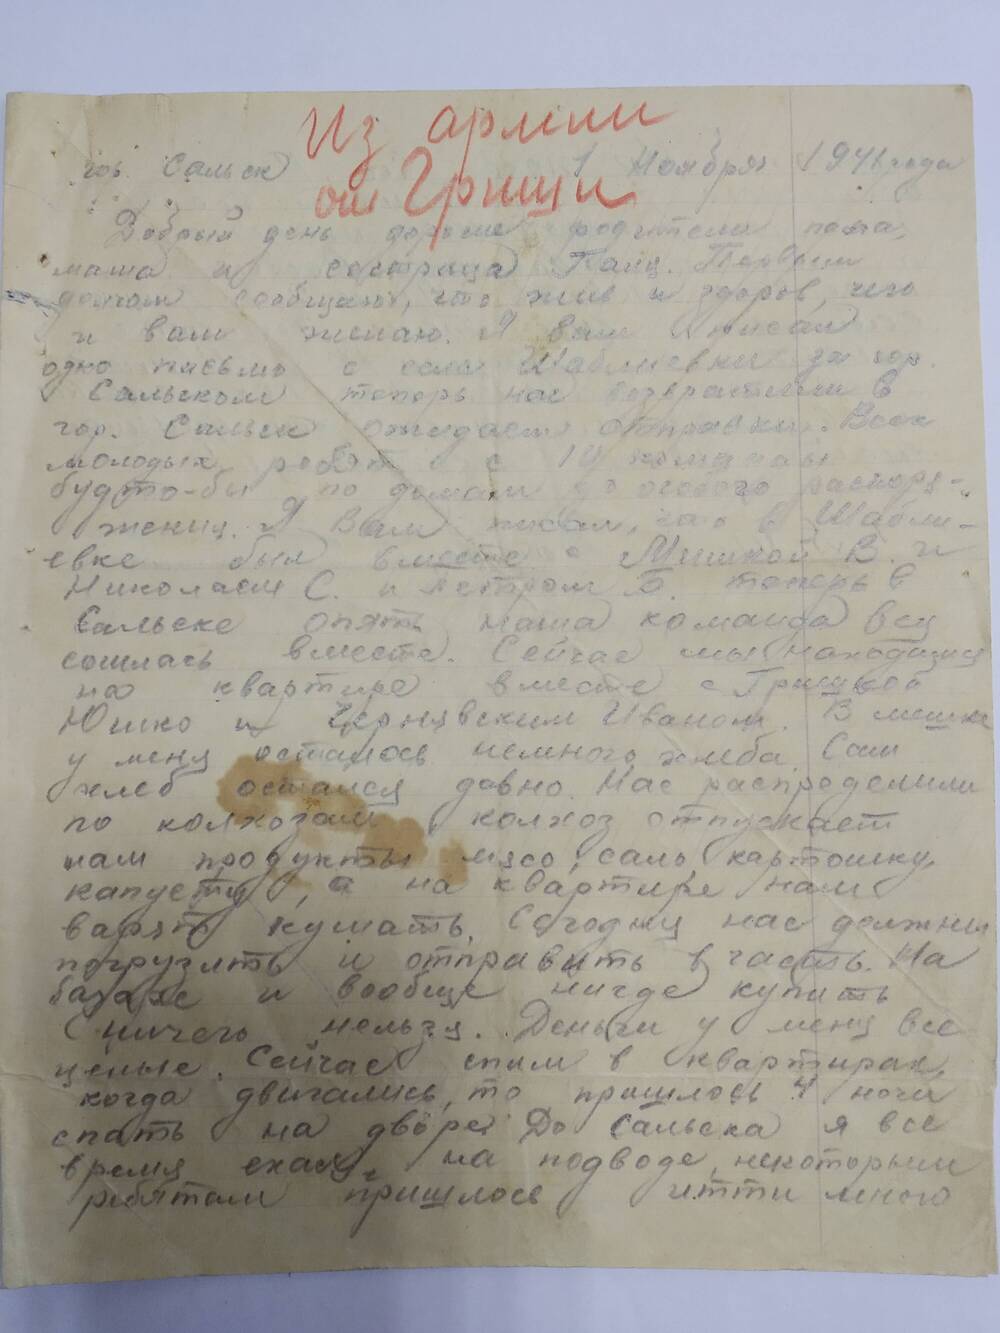 Из армии
от Грищи
гор. Сальск 1 Ноября 1941 года
Добрый день дорогие родители папа,
мама и сестрица Паиц. Первым
долгом сообщаю, что жив и здоров, чего
и вам желаю. Я вам писал
одно письмо с села Шаблиевки за гор.
Сальском теперь нас возвратили в
гор. Сальск ожидаем отправки. Всех
молодых ребят с
будто-бы по домам до особого распоря-
жениц. Я Вам писал, что в Шабли-
евке был вместе с Мишкой В. и
Николаем С. и Петром Б. теперь в
Сальске опять наша команда всц
сошлась вместе. Сейчас мы находимсц
на квартире вместе с Гришкой
Юшко и Чернцвским Иваном. В мешке
у менц осталось немного хлеба. Сам
хлеб остался давно. Нас распределили
по колхозам, колхоз отпускает
нам продукты мясо, сало, картошку,
капусту, а на квартире нам
варят кушать. Сегоднц нас должны
погрузить и отправить в часть. На
базаре и вообще нигде купить
ничего нельзц. Деньги у менц все
целые. Сейчас спим в квартирах,
когда двигались, то пришлось 4 ночи
спать на дворе. До Сальска я все
время ехал на подводе, некоторым
ребятам пришлось итти много